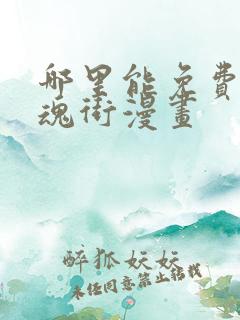 哪里能免費
魂街漫畫
醉狐妖妖
未经同意禁止转载